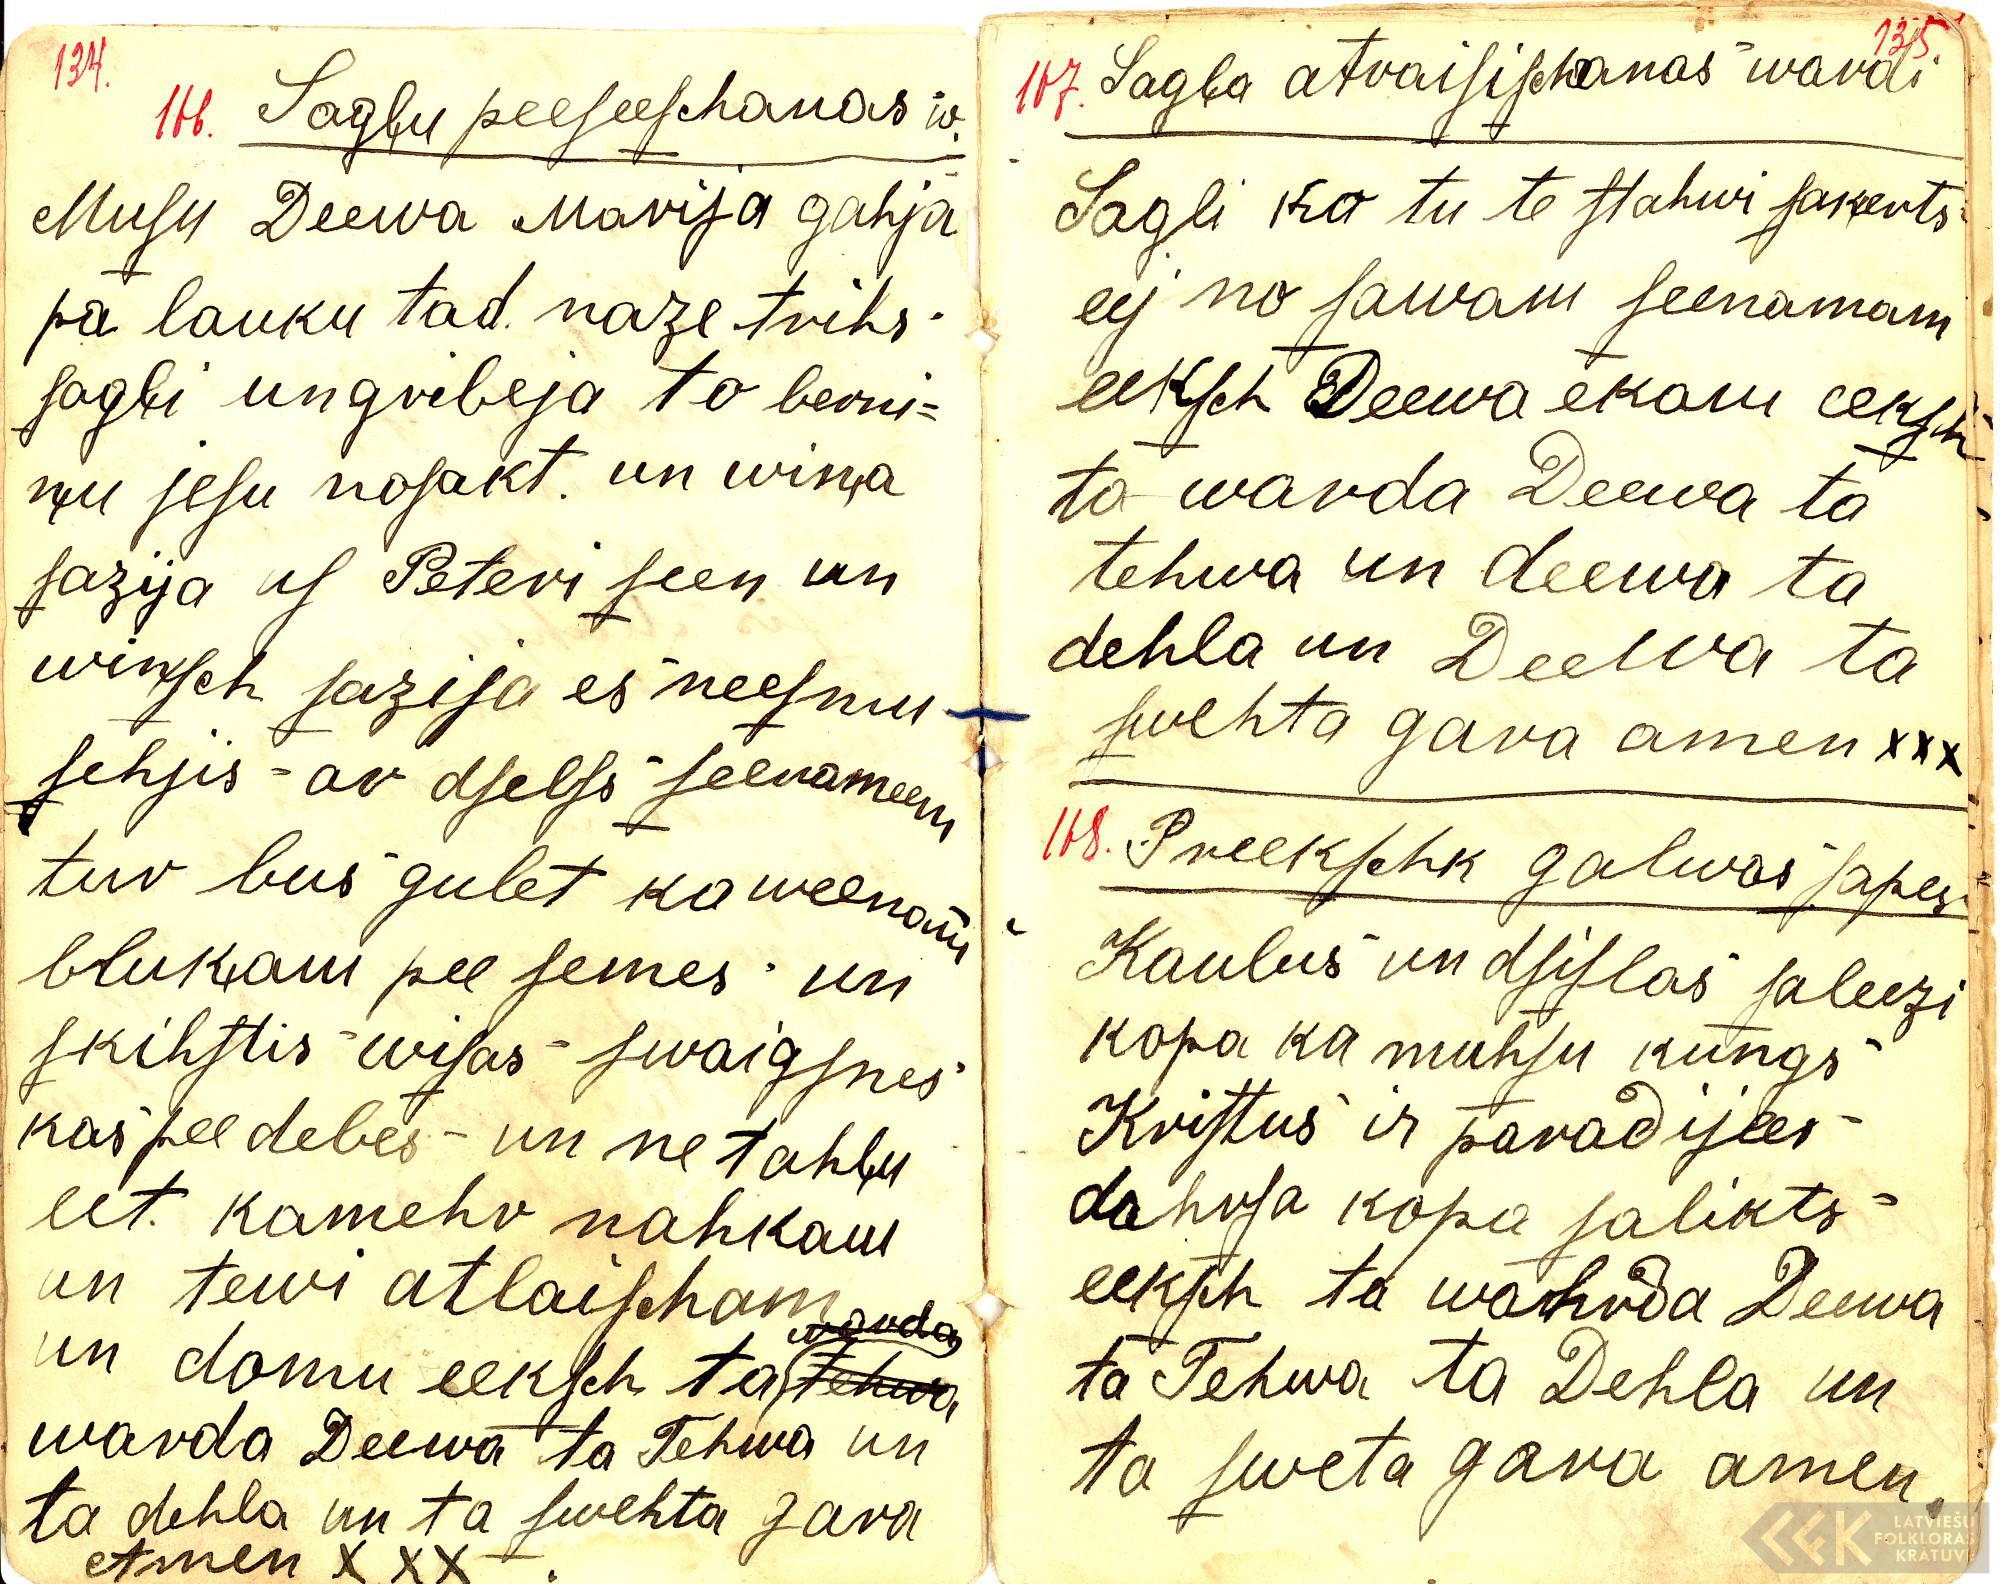 134.
166. Sagļu peeseeschanas w.
Musu Deewa Marija gahja
pa lauku tad. naze trihs
sagļi un gribeja to berni=
ņu jesu nosakt. un wiņa
sazija us Peteri seen un
wiņsch sazija es neesmu
sehjis ar dselss seenameem
tur bus gulet ka weenam
bluķam pee semes un
skihstis wisas swaigsnes
kas pee debes un ne tahļu
eet. kamehr nahkam
un tewi atlaischam
warda
un domu eeksch ta Tehwa
warda Deewa ta Tehwa un
ta dehla un ta swehta gara
Amen x x x .
135.
167. Sagļa atraisischanas wardi
Sagli ka tu te stahwi sakerts
eij no sawam seenamam
eeksch Deewa ekam eeksch
ta warda Deewa ta
tehwa un deewa ta
dehla un Deewa ta
swehta gara amen xxx
168. Preekschk galwas sapes
Kaulus un dsislas saleezi
kopa ka muhsu kungs
Kristus ir paradijees
dahrsa kopa salikts
eeksch ta wahrda Deewa
ta Tehwa ta Dehla un
ta sweta gara amen.
LATVIEŠU
FOLKLORAS
KRĀTUVE